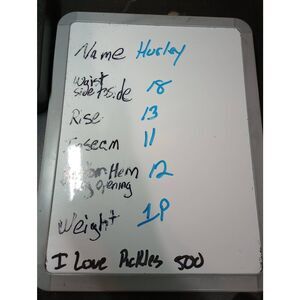 Name Hurley
Waist
side to side 18
Rise 13
Inseam 11
Bottom Hem 12
leg opening
Weight 1P
I Love Pickles 500